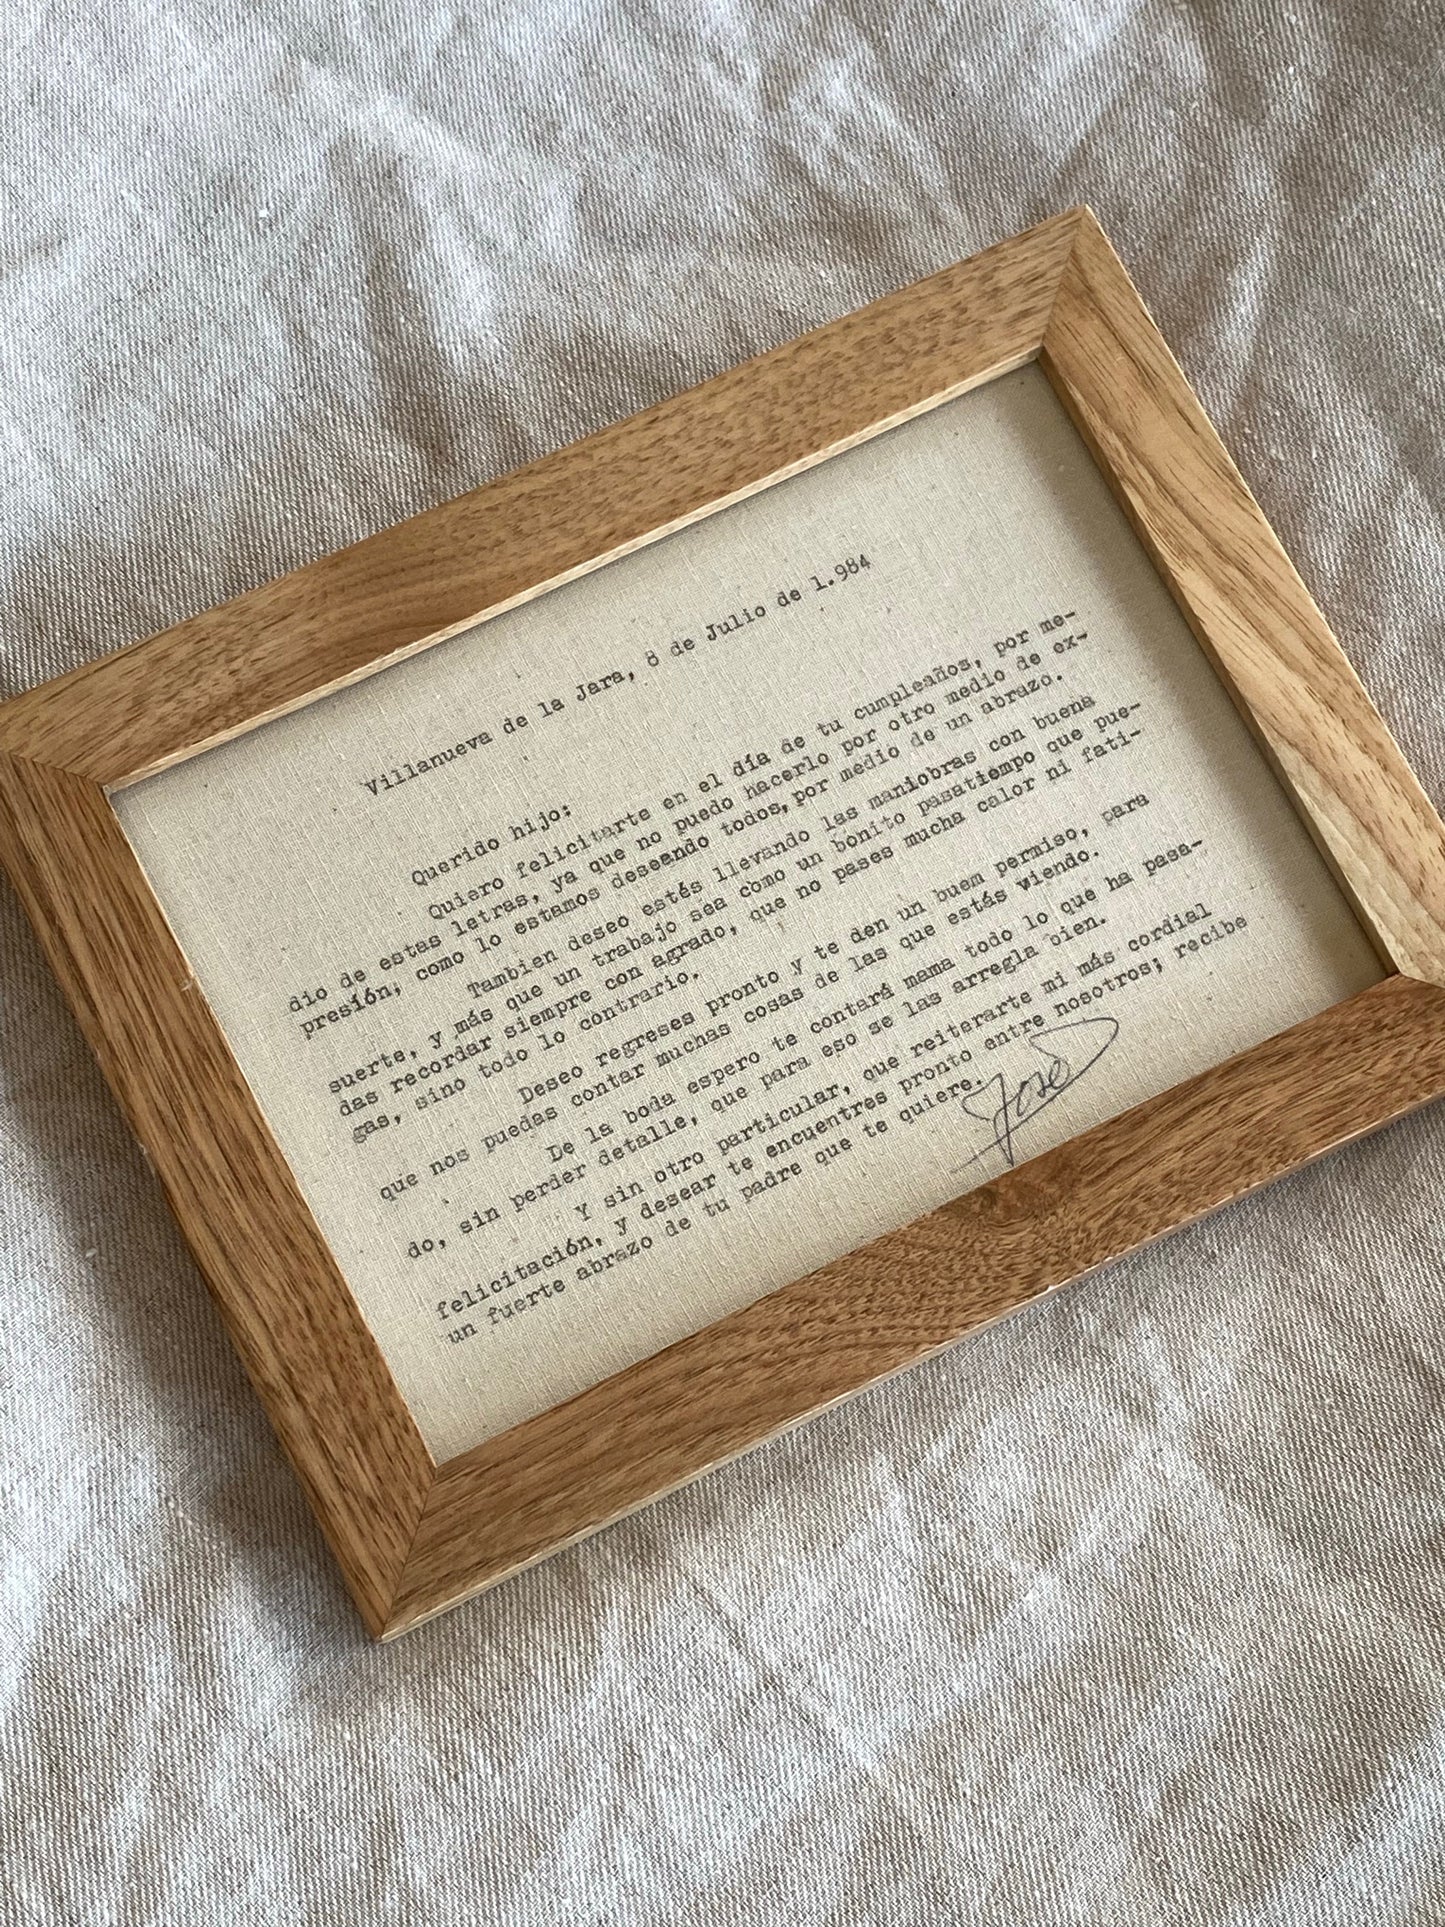 Villanueva de la Jara, 8 de Julio de 1.984
Querido hijo:
Quiero felicitarte en el día de tu cumpleaños, por me-
dio de estas letras, ya que no puedo hacerlo por otro medio de ex-
presión, como lo estamos deseando todos, por medio de un abrazo.
Tambien deseo estés llevando las maniobras con buena
suerte, y más que un trabajo sea como un bonito pasatiempo que pue-
das recordar siempre con agrado, que no pases mucha calor ni fati-
gas, sino todo lo contrario.
Deseo regreses pronto y te den un buem permiso, para
que nos puedas contar muchas cosas de las que estás viendo.
De la boda espero te contará mama todo lo que ha pasa-
do, sin perder detalle, que para eso se las arregla bien.
Y sin otro particular, que reiterarte mi más cordial
felicitación, y desear te encuentres pronto entre nosotros; recibe
un fuerte abrazo de tu padre que te quiere.
José